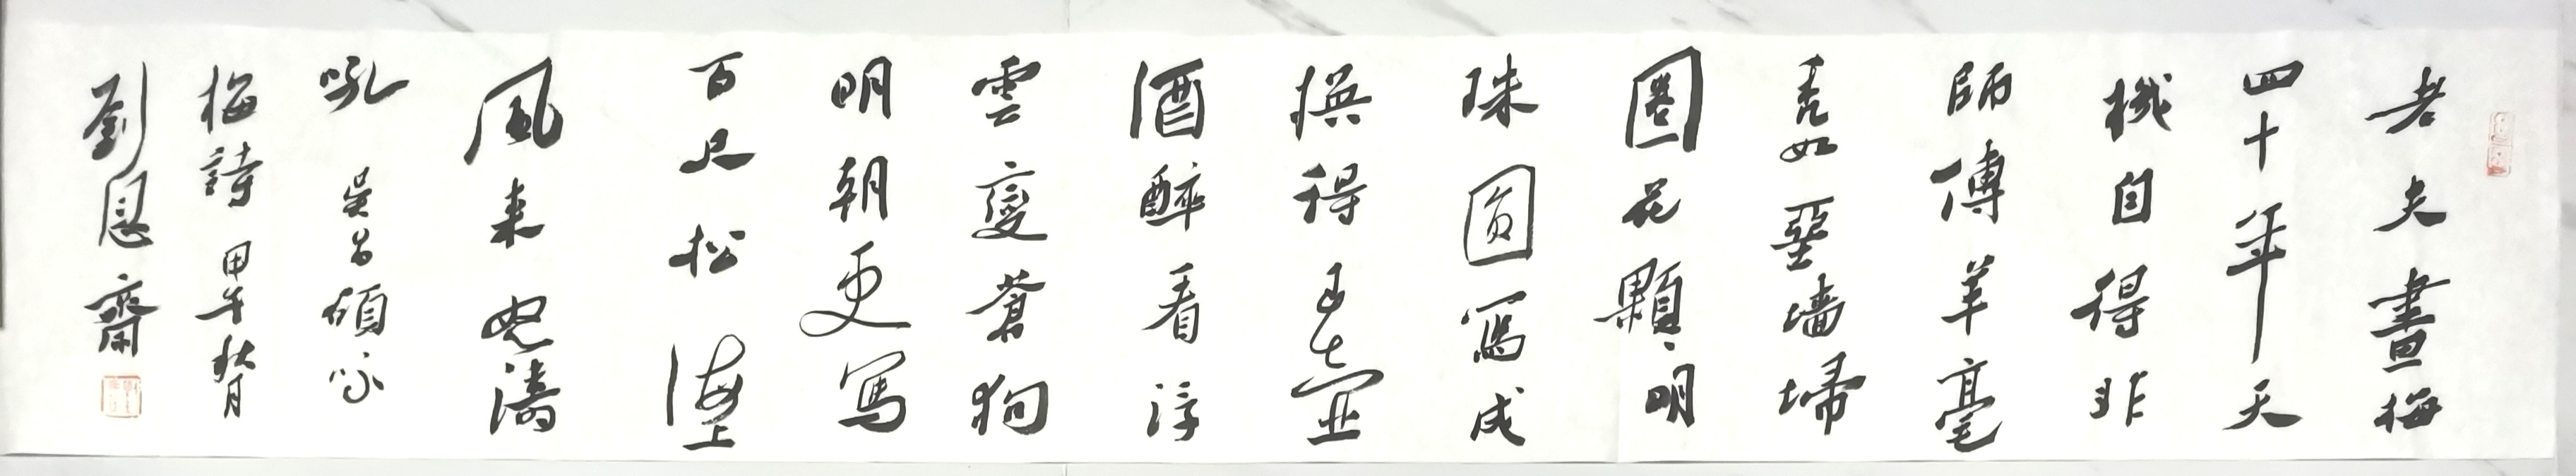 老夫畫梅
四十年天
機自得非
師傅羊毫
禿如堊墙埽
圈花顆々明
珠圓寫成
換得壺
酒醉看浮
雲變蒼狗
明朝更寫
百尺松海上
風来怒濤
吼 吴昌碩詠
梅詩 甲午秋月
劉恩齋